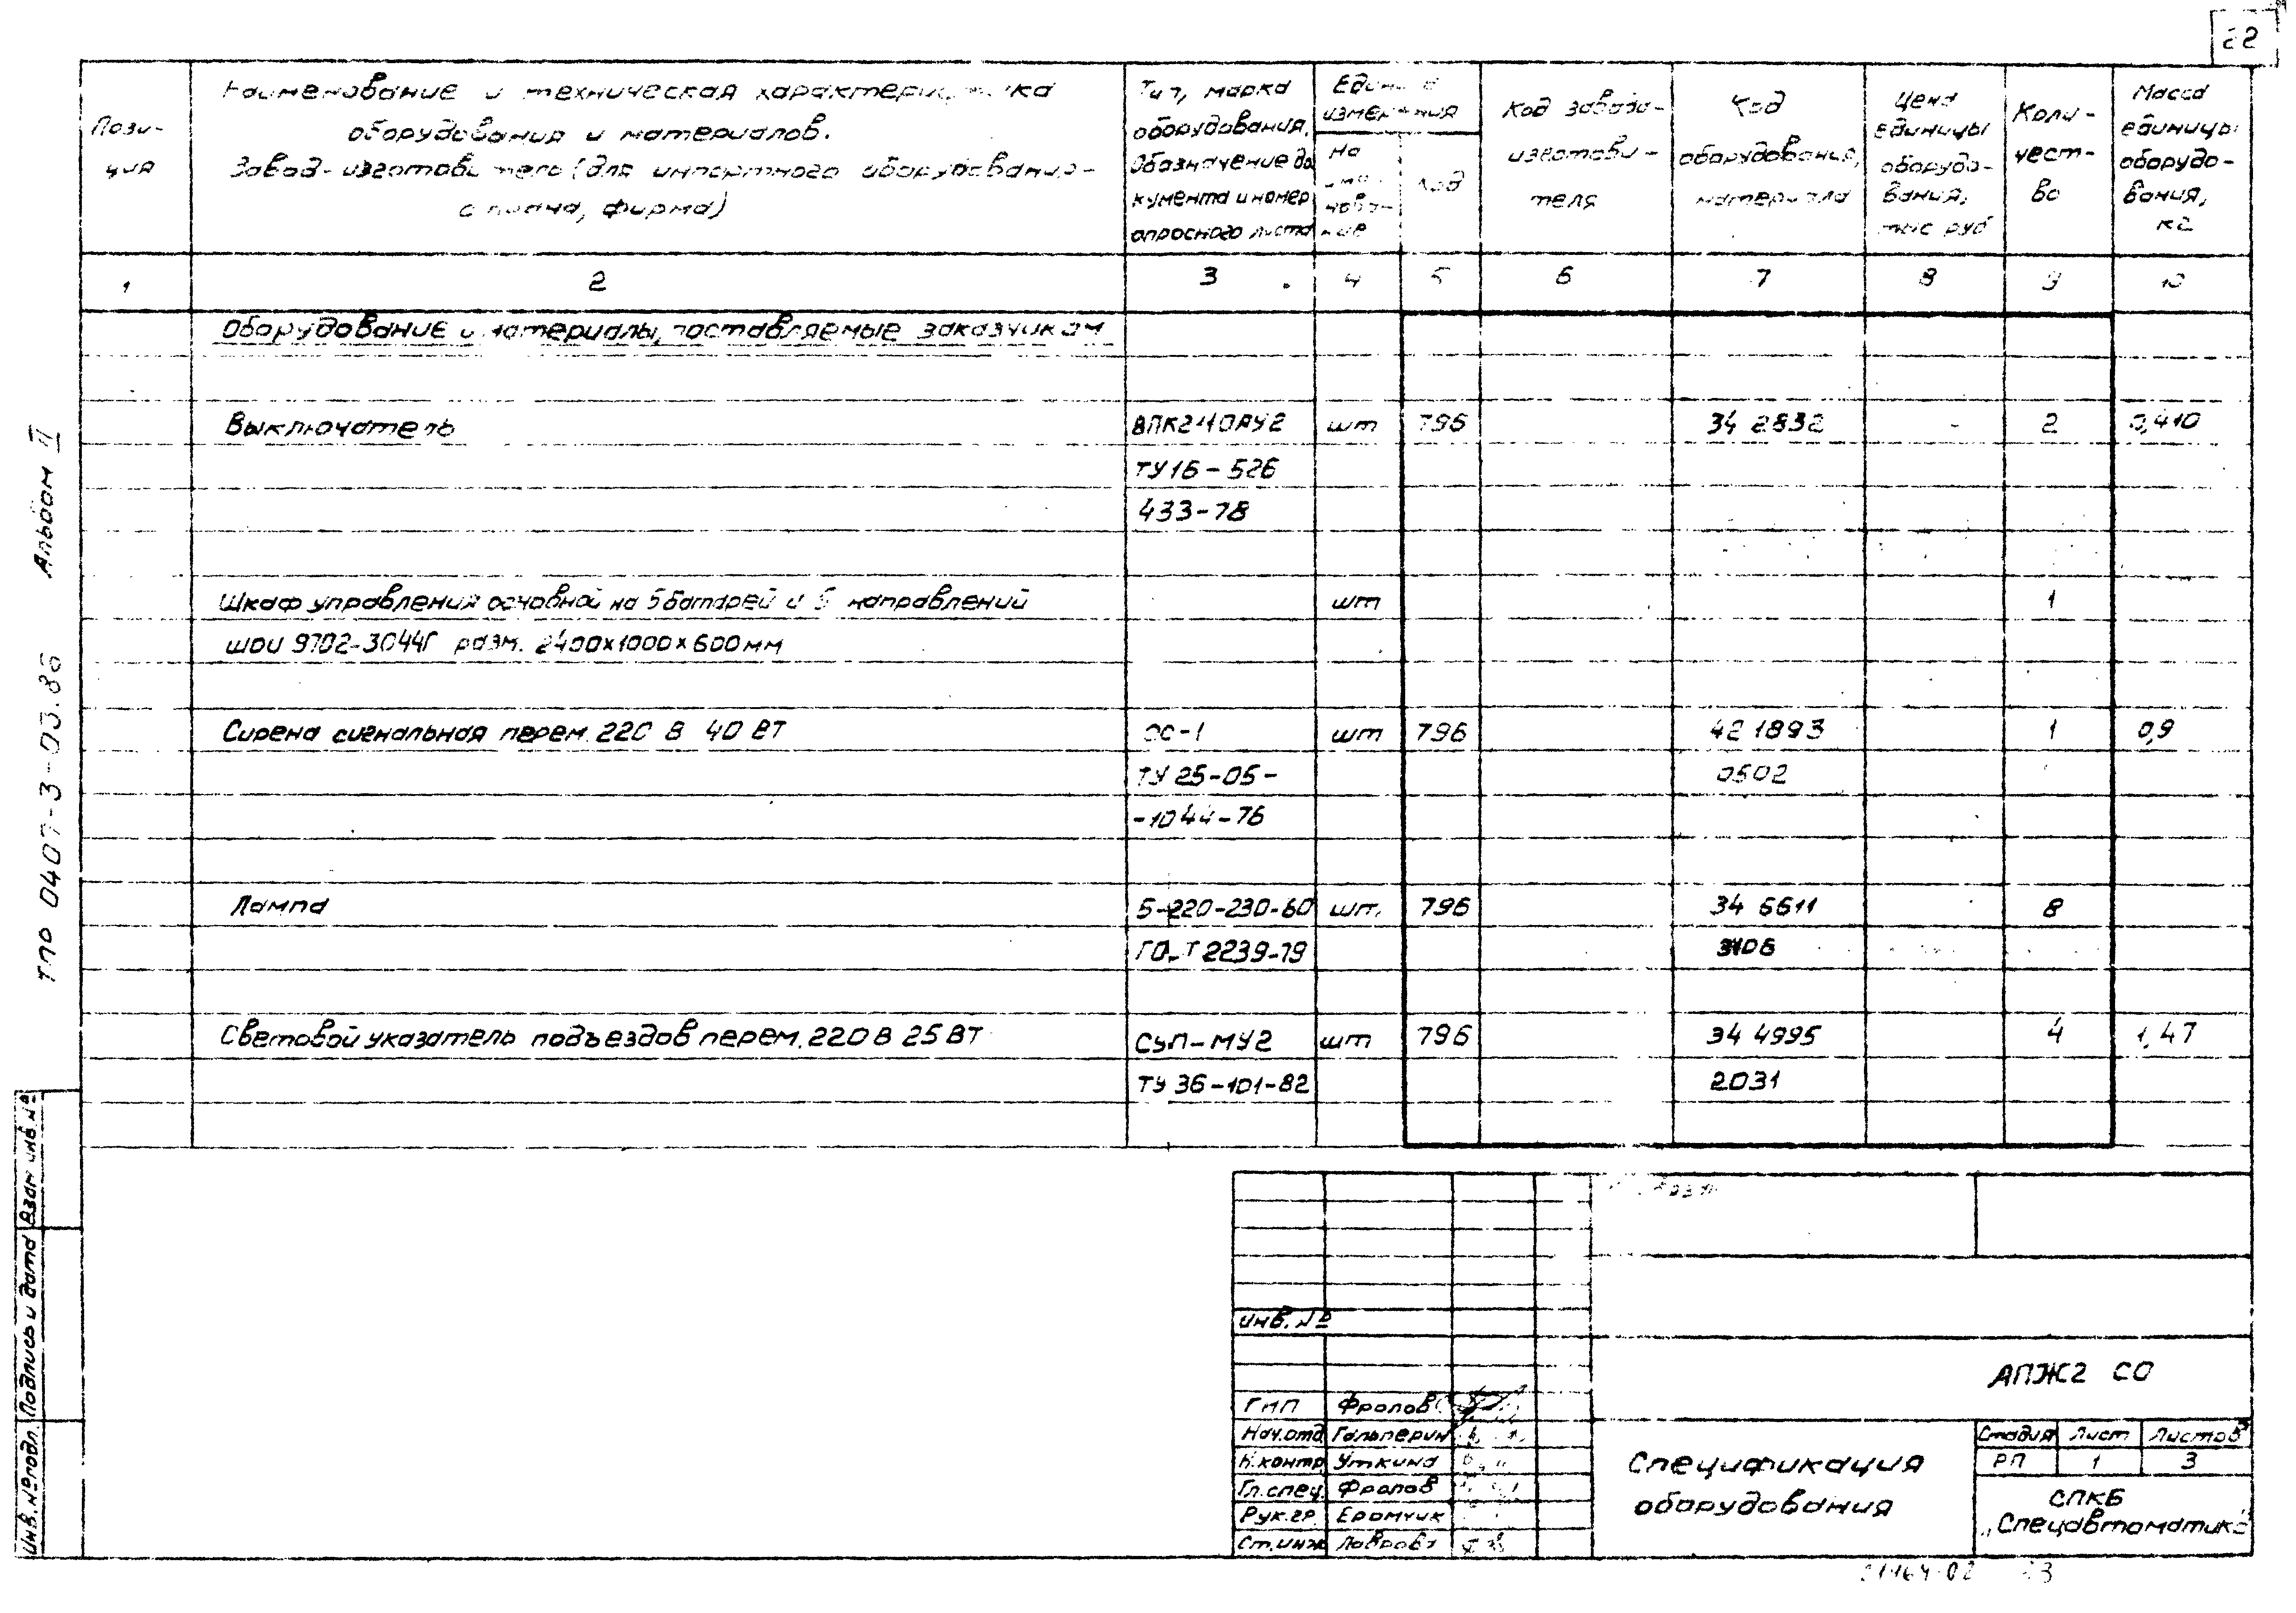 22
Пози-
ция
Наименование и техническая характеристика
оборудования и материалов.
Завод-изготовитель (для импортного оборудования-
страна, фирма)
Тип, марка
оборудования.
Обозначение до
кумента и номер
опросного листа
Единица
измерения
На
име-
нова-
ние
Код
Код завода-
изготови-
теля
Код
оборудования,
материала
Цена
единицы
оборудо-
вания,
тыс руб
Коли-
чест-
во
Масса
единицы
оборудо-
вания,
кг
1 2 3 4 5 6 7 8 9 10
Оборудование и материалы, поставляемые заказчикам
Выключатель ВПК2110АУ2 шт 796 34 2832 - 2 0,410
ТУ16-526
433-78
Шкаф управления основной на 5 батарей и 5 направлений шт 1
ШОИ 9702-3044Г разм. 2400х1000х600мм
Сирена сигнальная перем. 220 В 40 ВТ СС-1 шт 796 42 1893 1 0,9
ТУ 25-05- 0502
-1044-76
Лампа Б-220-230-60 шт. 796 34 6611 8
ГОСТ 2239-79 3106
Световой указатель подъездов перем. 220В 25 ВТ СУП-МУ2 шт 796 34 4995 4 1,47
ТУ 36-101-82 2031
ТПО 0407-3-03.86 Альбом II
Инв. № подл. Подпись и дата Взам инв. №
Инв. №
АПЖ2 СО
ГИП Фролов
Нач.отд Гальперин
Н.контр Уткина
Гл.спец. Фролов
Рук.гр. Еромчик
Ст.инж Лаврова
Спецификация
оборудования
Стадия Лист Листов
РП 1 3
СПКБ
„Спецавтоматика"
21464-02 23